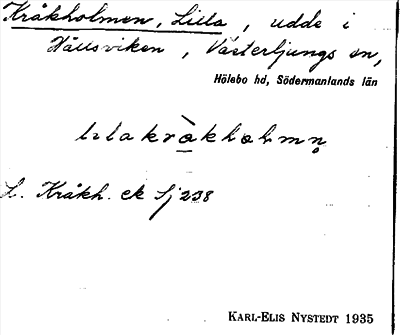 Kråkholmen, Lilla, udde i
Hållsviken, Västerljungs sn,
Hölebo hd, Södermanlands län
L. Kråkh. ek Sj 238
KARL-ELIS NYSTEDT 1935